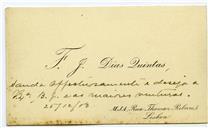 F. J. Dias Quintas,
sauda affectuosamente e deseja a
V. Exª. B. F. e as maiores venturas.
25/12/03
Rua Thomaz Ribeiro,
Lisboa